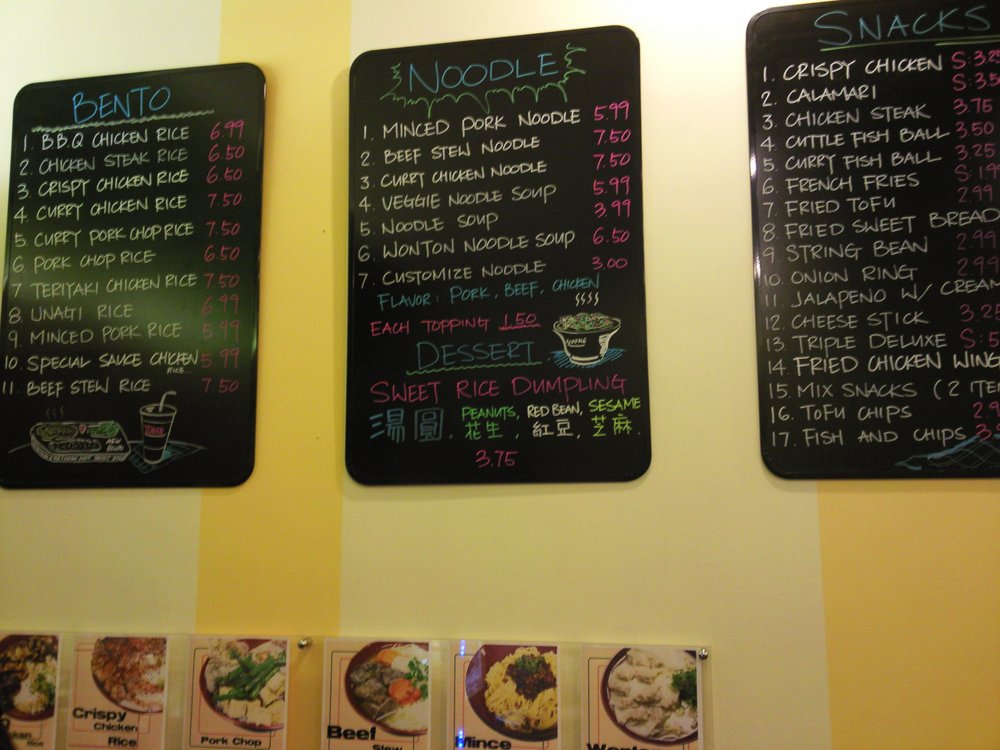 BENTO
1. B.B.Q CHICKEN RICE 6.99
2. CHICKEN STEAK RICE 6.50
3. CRISPY CHICKEN RICE 6.50
4. CURRY CHICKEN RICE 7.50
5. CURRY PORK CHOP RICE 7.50
6. PORK CHOP RICE 6.50
7. TERIYAKI CHICKEN RICE 7.50
8. UNAGI RICE 6.99
9. MINCED PORK RICE 5.99
10. SPECIAL SAUCE CHICKEN RICE... 5.99
11. BEEF STEW RICE 7.50
NOODLE
1. MINCED PORK NOODLE 5.99
2. BEEF STEW NOODLE 7.50
3. CURRY CHICKEN NOODLE 7.50
4. VEGGIE NOODLE SOUP 5.99
5. NOODLE SOUP 3.99
6. WONTON NOODLE SOUP 6.50
7. CUSTOMIZE NOODLE 3.00
FLAVOR: PORK, BEEF, CHICKEN
EACH TOPPING 1.50
DESSERT
SWEET RICE DUMPLING
湯圓. PEANUTS, RED BEAN, SESAME
花生, 紅豆, 芝麻.
3.75
SNACKS
1. CRISPY CHICKEN S: 3.25
2. CALAMARI S: 3.5
3. CHICKEN STEAK 3.75
4. CUTTLE FISH BALL 3.50
5. CURRY FISH BALL 3.25
6. FRENCH FRIES S: 1.9
7. FRIED TOFU 2.99
8. FRIED SWEET BREAD
9. STRING BEAN 2.99
10. ONION RING 2.99
11. JALAPENO W/ CREAM
12. CHEESE STICK 3.25
13. TRIPLE DELUXE S: 5
14. FRIED CHICKEN WING
15. MIX SNACKS (2 ITE
16. TOFU CHIPS 2.9
17. FISH AND CHIPS 3.
Rice
Crispy
Chicken
Rice
Pork Chop
Beef
Stew
Mince